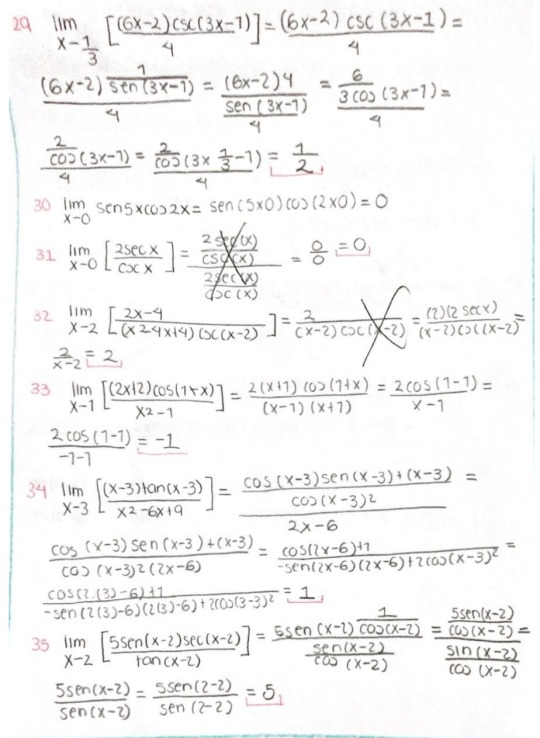 29 lim [(6x-2)csc(3x-1)] = (6x-2) csc (3x-1) =
x-1/3 4 4
(6x-2) 1/sen(3x-1) = (6x-2)4 = 6
4 sen(3x-1) 3cos(3x-1) =
4 4
2/cos(3x-1) = 2/cos(3x 1/3-1) = 1/2
4 4
30 lim sen5xcos2x = sen(5x0)cos(2x0) = 0
x-0
31 lim [2secx/cscx] = 2sec(x)/csc(x) / 2sec(x)/csc(x) = 0/0 = 0
x-0
32 lim [2x-4/(x2-4x+4)csc(x-2)] = 2/(x-2)csc(x-2) = (2)(2secx)/(x-2)csc(x-2) =
x-2
2/x-2 = 2
33 lim [(2x+2)cos(1+x)/x2-1] = 2(x+1)cos(1+x)/(x-1)(x+1) = 2cos(1-1)/x-1 =
x-1
2cos(1-1)/-1-1 = -1
34 lim [(x-3)tan(x-3)/x2-6x+9] = cos(x-3)sen(x-3)+(x-3)/cos(x-3)2 / 2x-6 =
x-3
cos(x-3)sen(x-3)+(x-3)/cos(x-3)2(2x-6) = cos(2x-6)+1/-sen(2x-6)(2x-6)+2cos(x-3)2 =
cos(2(3)-6)+1/-sen(2(3)-6)(2(3)-6)+2cos(3-3)2 = 1
35 lim [5sen(x-2)sec(x-2)/tan(x-2)] = 5sen(x-2) 1/cos(x-2) / sen(x-2)/cos(x-2) = 5sen(x-2)/cos(x-2) / sin(x-2)/cos(x-2) =
x-2
5sen(x-2)/sen(x-2) = 5sen(2-2)/sen(2-2) = 5